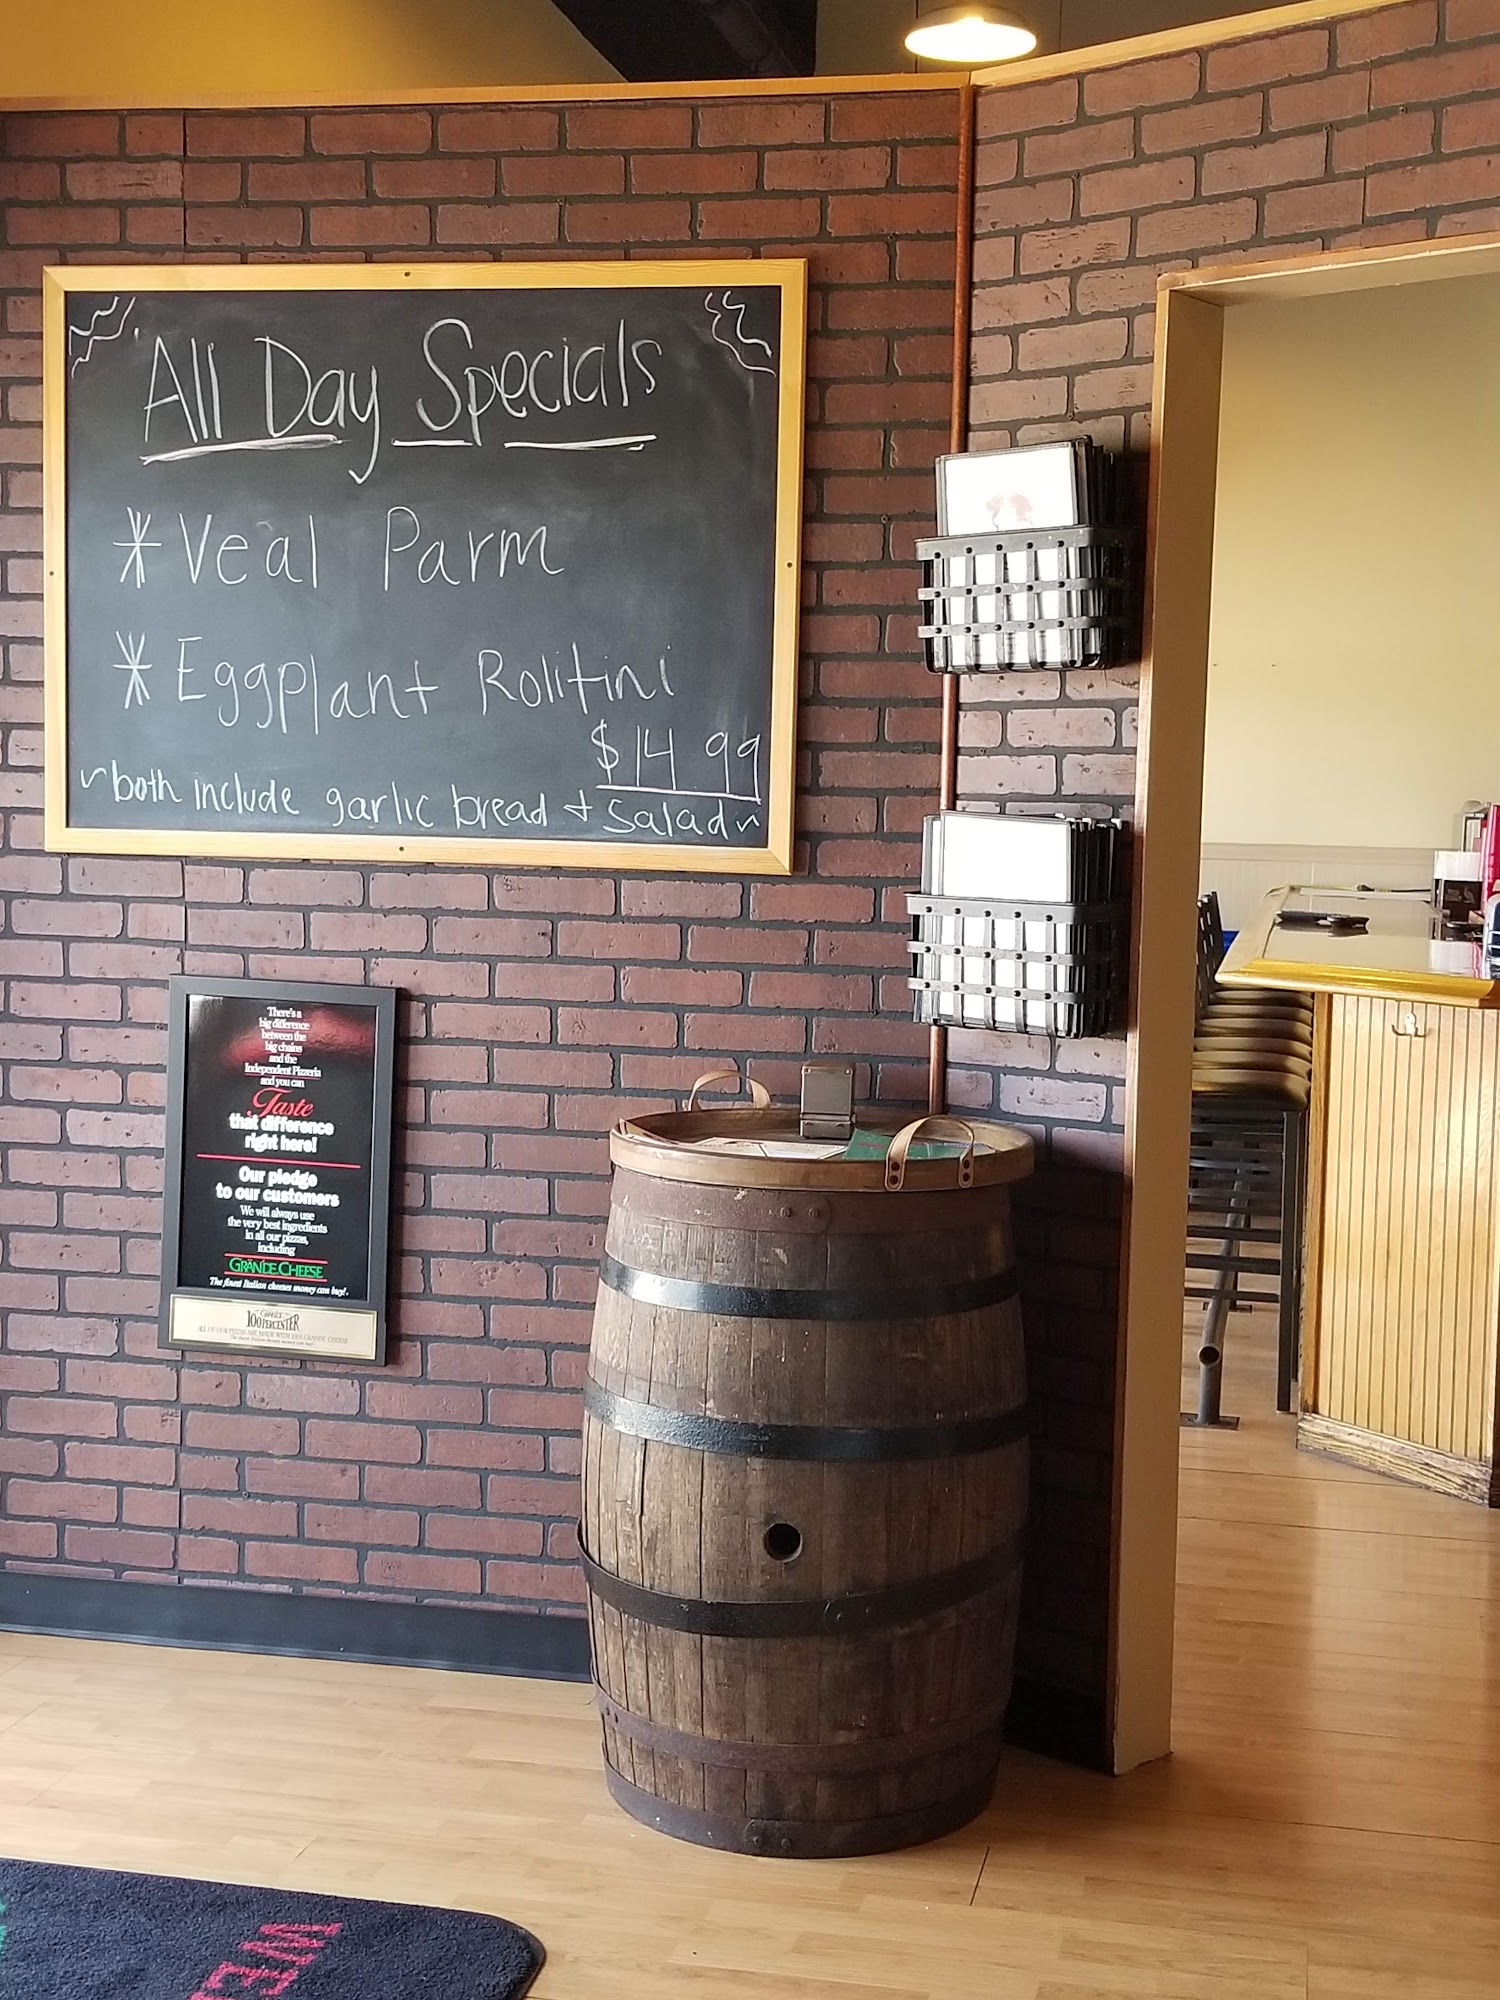 All Day Specials
* Veal Parm
* Eggplant Rolitini
$14 99
~both include garlic bread + salad~
There's a
big difference
between the
big chains
and the
Independent Pizzeria
and you can
Taste
that difference
right here!
Our pledge
to our customers
We will always use
the very best ingredients
in all our pizzas,
including
GRANDE CHEESE
The finest Italian cheeses money can buy!
GRANDE
100 PERCENTER
ALL OF OUR PIZZAS ARE MADE WITH 100% GRANDE CHEESE
The finest Italian cheeses money can buy!